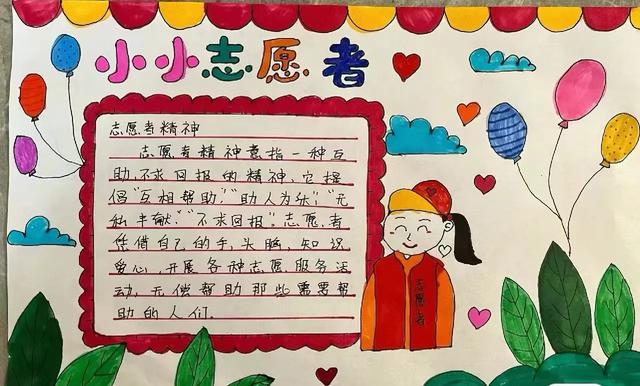 小小志愿者
志愿者精神
志愿者精神意指一种互
助,不求回报的精神,它提
倡“互相帮助”“助人为乐”“无
私丰献”“不求回报”。志愿者
凭借自己的手,头脑,知识,
爱心,开展各种志愿服务活
动,无偿帮助那些需要帮
助的人们。
志愿者